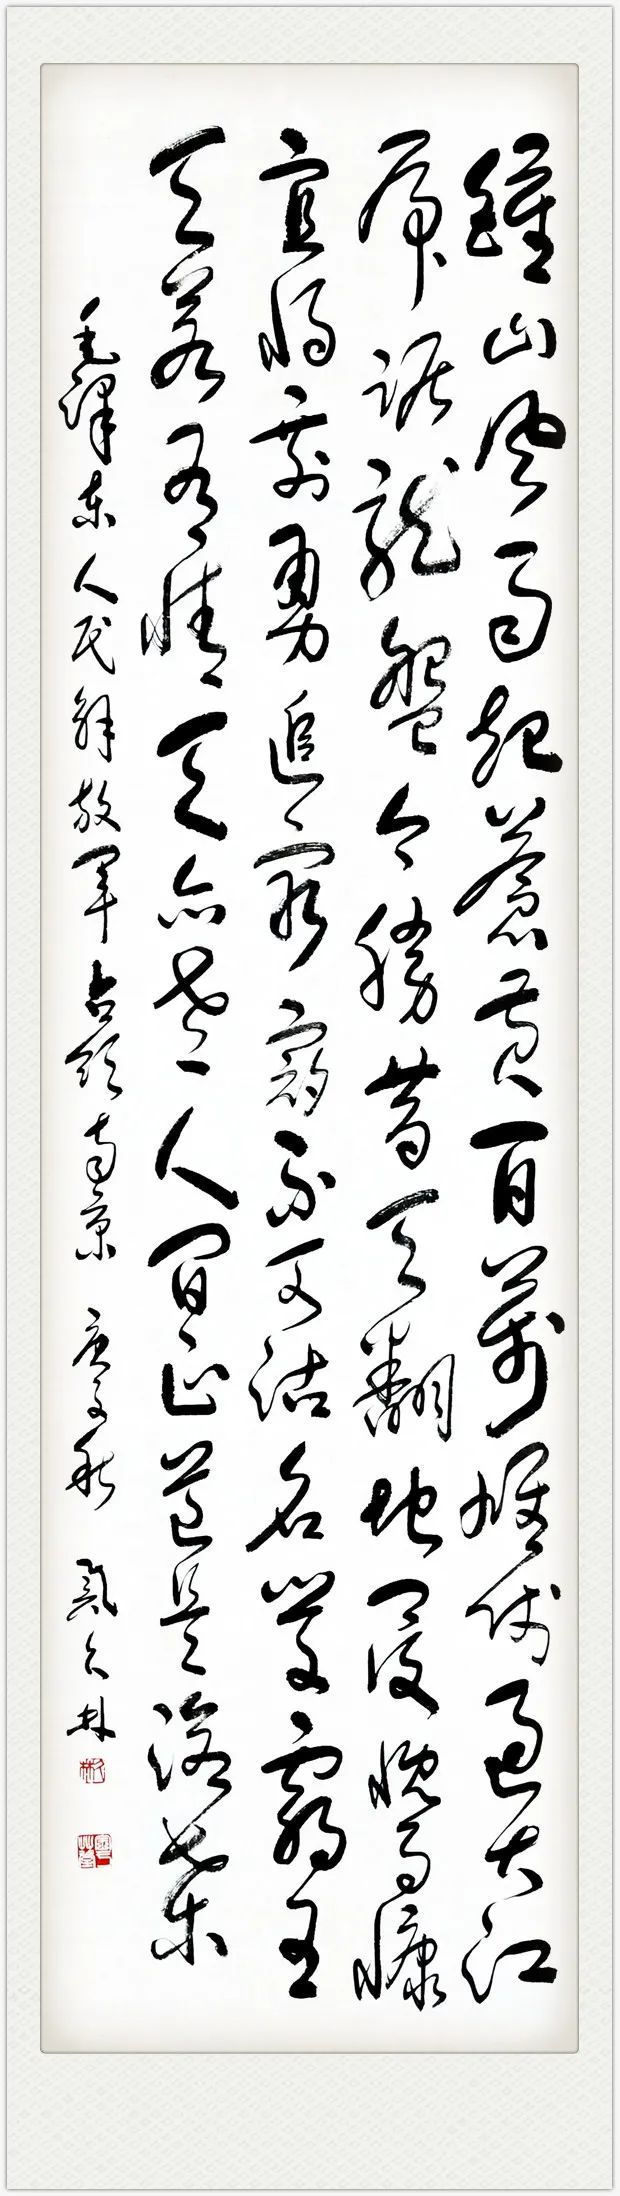 鐘山風雨起蒼黄百萬雄師過大江
虎踞龍盤今勝昔天翻地覆慨而慷
宜將剩勇追窮寇不可沽名學霸王
天若有情天亦老人間正道是滄桑
毛澤東人民解放軍占領南京 庚子秋